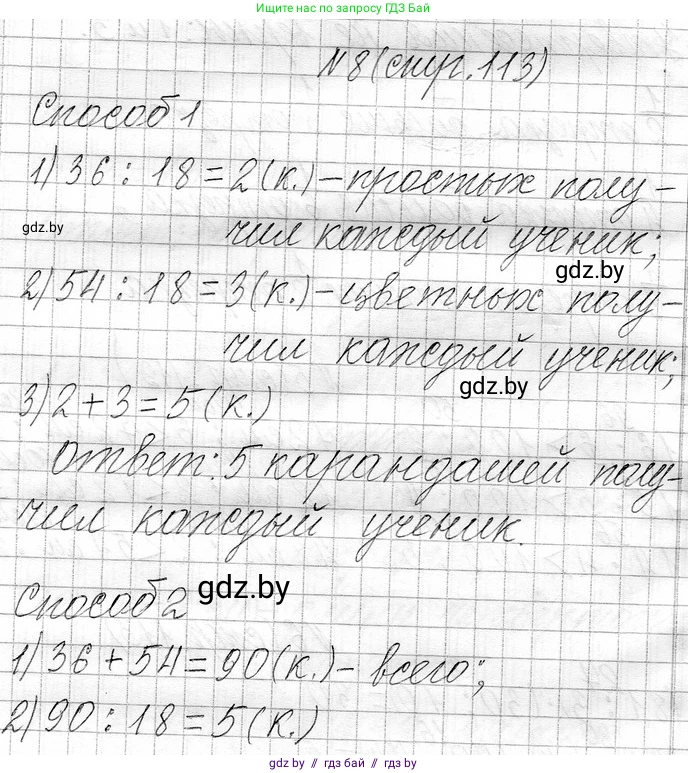 Ищите нас по запросу ГДЗ Бай
№8 (стр. 113)
Способ 1
1) 36 : 18 = 2 (к.) – простых полу-
чил каждый ученик;
gdz.by
gdz.by
2) 54 : 18 = 3 (к.) – цветных полу-
чил каждый ученик;
gdz.by
3) 2 + 3 = 5 (к.)
Ответ: 5 карандашей полу-
чил каждый ученик.
Способ 2
gdz.by
1) 36 + 54 = 90 (к.) – всего;
2) 90 : 18 = 5 (к.)
gdz.by // гдз бай // gdz.by